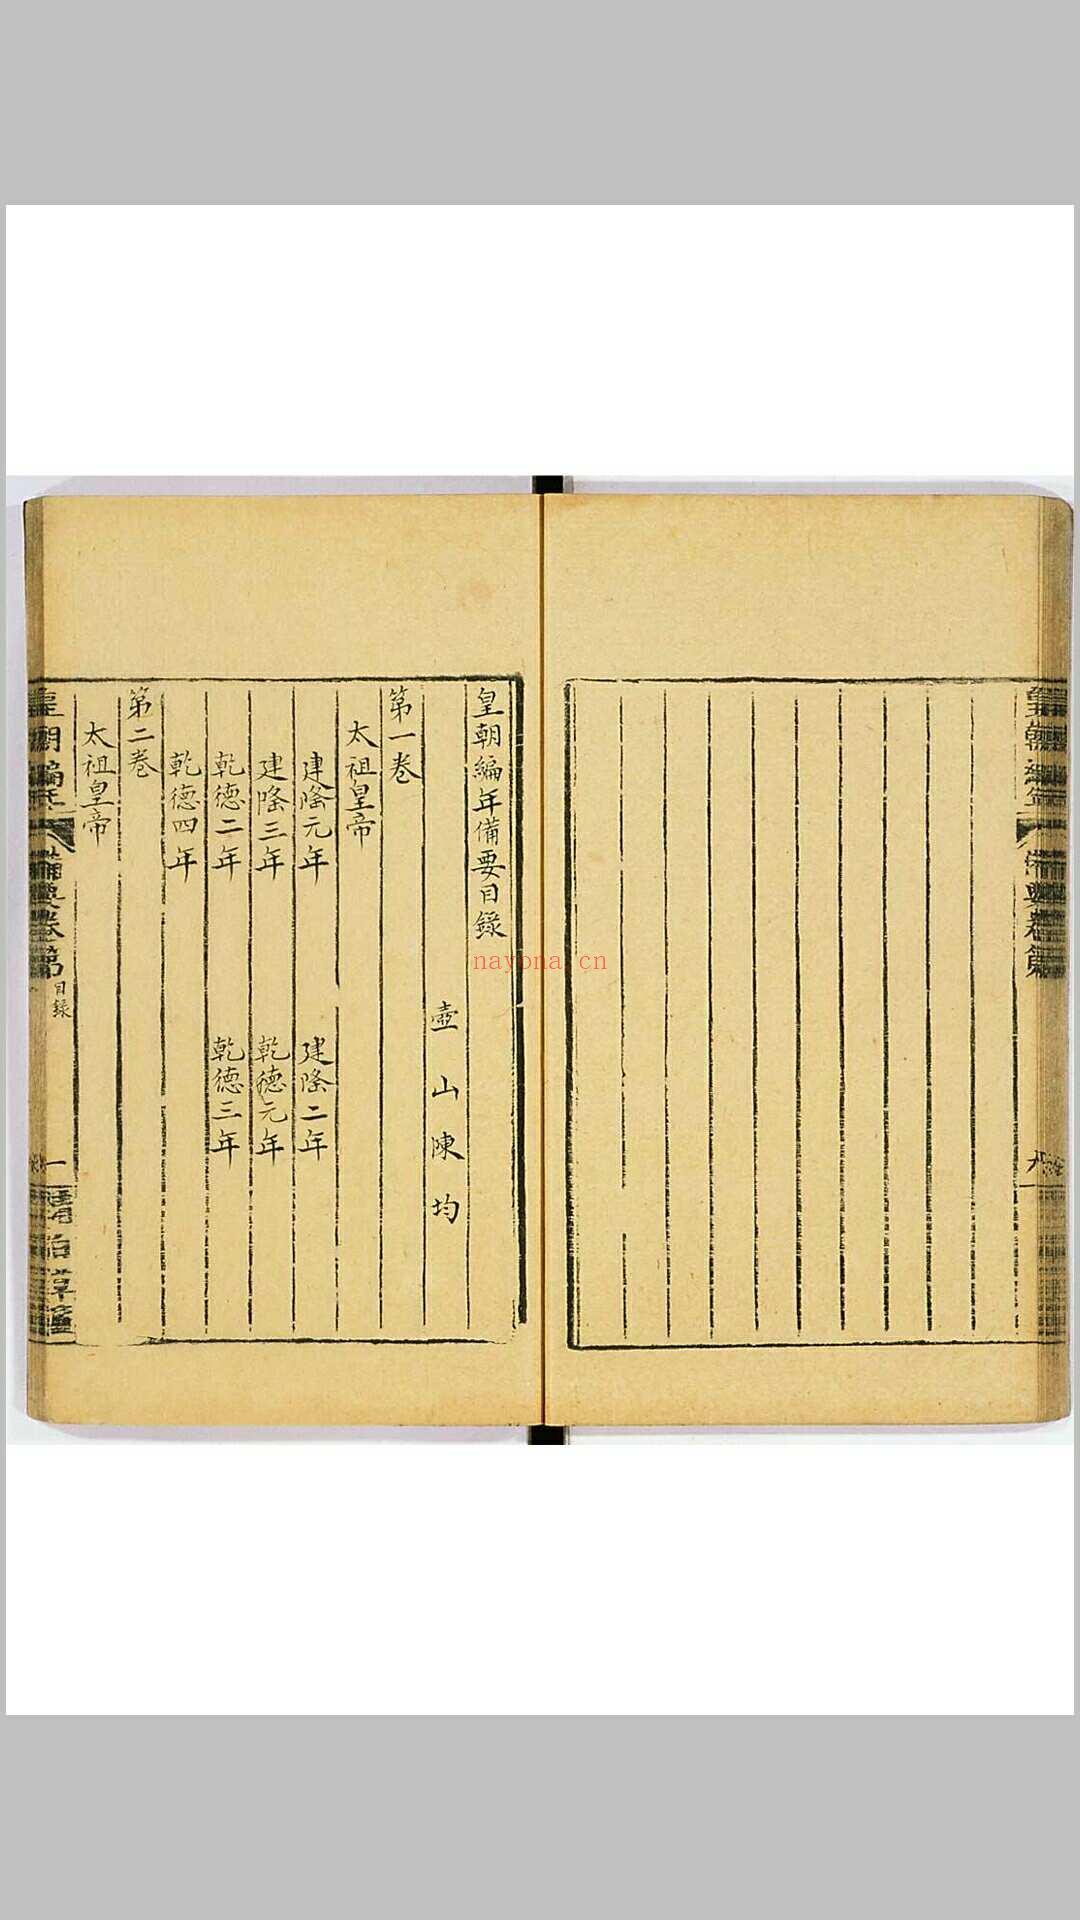 皇朝編年備要目錄
壺山陳均
第一卷
太祖皇帝
建隆元年 建隆二年
建隆三年 乾德元年
乾德二年 乾德三年
乾德四年
第二卷
太祖皇帝
目錄
一
nayona.cn